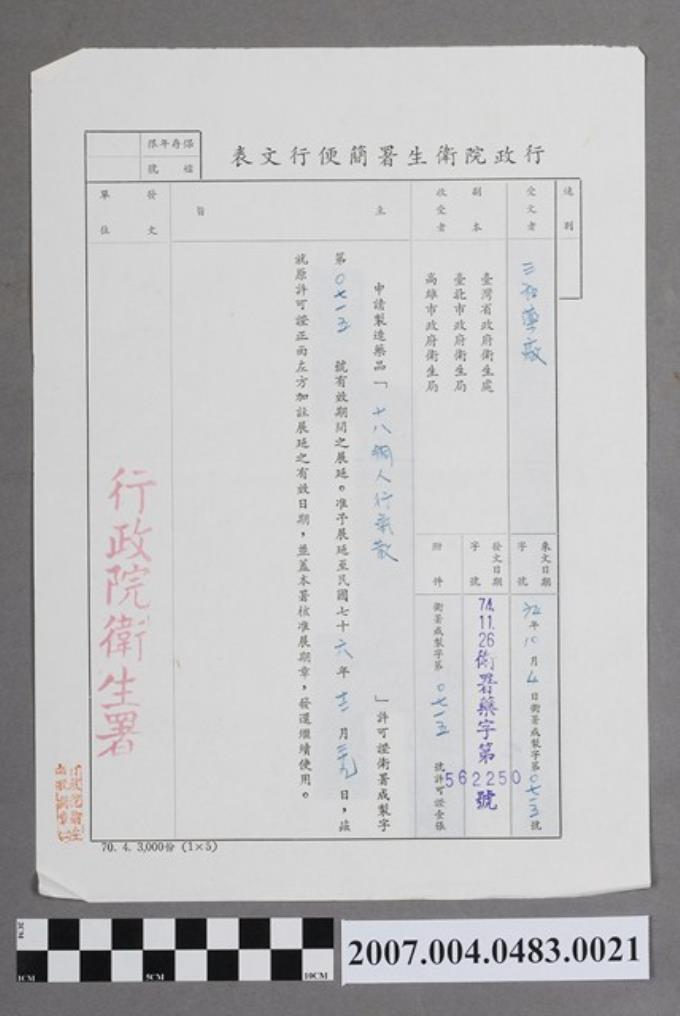 行政院衛生署簡便行文表
保存年限
檔號
速別
受文者
三和藥廠
來文日期
字號
年10月4日衛署成製字第0七一五號
副本
收受者
臺灣省政府衛生處
臺北市政府衛生局
高雄市政府衛生局
發文日期
字號
74.11.26
衛署藥字第
562250
號
附件
衛署成製字第0七一五號許可證壹張
主旨
申請製造藥品「十八銅人行氣散」許可證衛署成製字
第0七一五號有效期間之展延。准予展延至民國七十六年十二月三十九日,茲
就原許可證正面左方加註展延之有效日期,並蓋本署核准展期章,發還繼續使用。
發文
單位
行政院衛生署
70. 4. 3,000份 (1×5)
2CM
1CM
5CM
10CM
2007.004.0483.0021